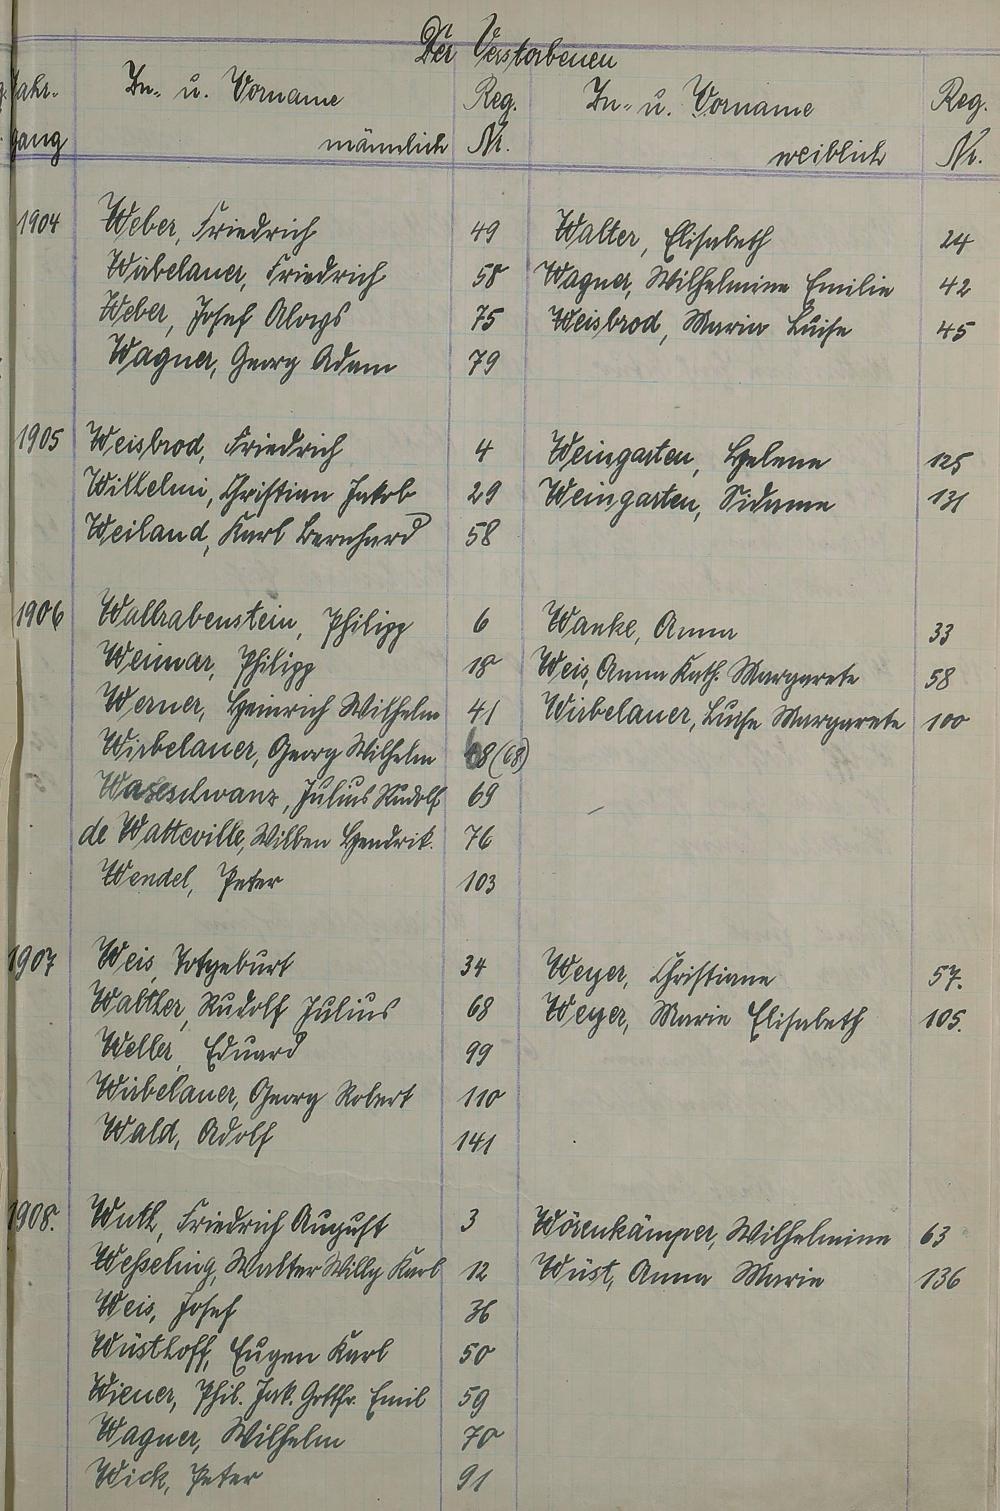 Der Verstorbenen
Jahr- Zu- u. Vorname Reg. Zu- u. Vorname Reg.
gang männlich Nr. weiblich Nr.
1904 Weber, Friedrich 49 Walter, Elisabeth 24
Wirbelauer, Friedrich 58 Wagner, Wilhelmine Emilie 42
Weber, Josef Aloys 75 Weisbrod, Maria Luise 45
Wagner, Georg Adam 79
1905 Weisbrod, Friedrich 4 Weingarten, Helene 125
Wilhelmi, Christian Jakob 29 Weingarten, Sidonie 131
Weiland, Karl Bernhard 58
1906 Wallrabenstein, Philipp 6 Wanke, Anna 33
Weimar, Philipp 18 Weis, Anna Kath. Margarete 58
Werner, Heinrich Wilhelm 41 Wirbelauer, Luise Margarete 100
Wirbelauer, Georg Wilhelm 68 (68)
Julius Rudolf 69
de Watteville, Willben Hendrik. 76
Wendel, Peter 103
1907 Weis, Totgeburt 34 Weyer, Christiane 57.
Walther, Rudolf Julius 68 Weyer, Marie Elisabeth 105.
Weller, Eduard 99
Wirbelauer, Georg Robert 110
Wald, Adolf 141
1908. Wuth, Friedrich August 3 Wösenkämper, Wilhelmine 63
Wesseling, Walter Willy Karl 12 Wüst, Anna Marie 136
Weis, Josef 36
Wüsthoff, Eugen Karl 50
Wiener, Phil. Jak. Gottfr. Emil 59
Wagner, Wilhelm 70
Wick, Peter 91